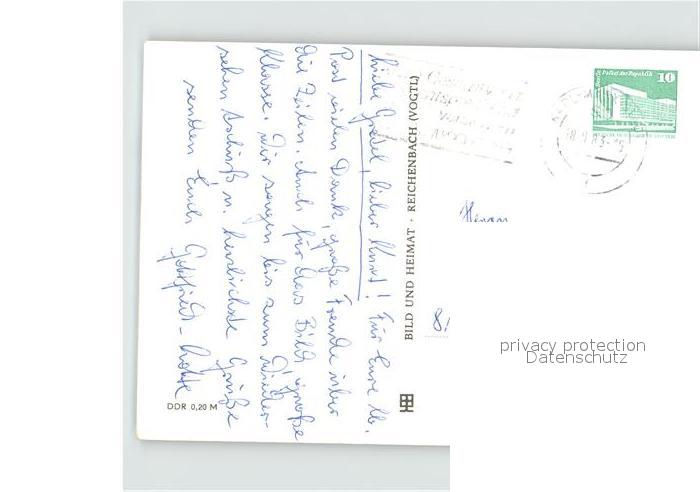 Liebe Gretel, lieber Kurt! Für Eure lb.
Post vielen Dank, große Freude über
die Zeilen. Auch für das Bild, große
Klasse. Wir sagen bis zum Wieder-
sehen Tschüß u. herzlichste Grüße
senden Euch Gottfried - Lotte
DDR 0,20 M
BILD UND HEIMAT · REICHENBACH (VOGTL)
Palast der Republik
10
Herrn
8
privacy protection
Datenschutz